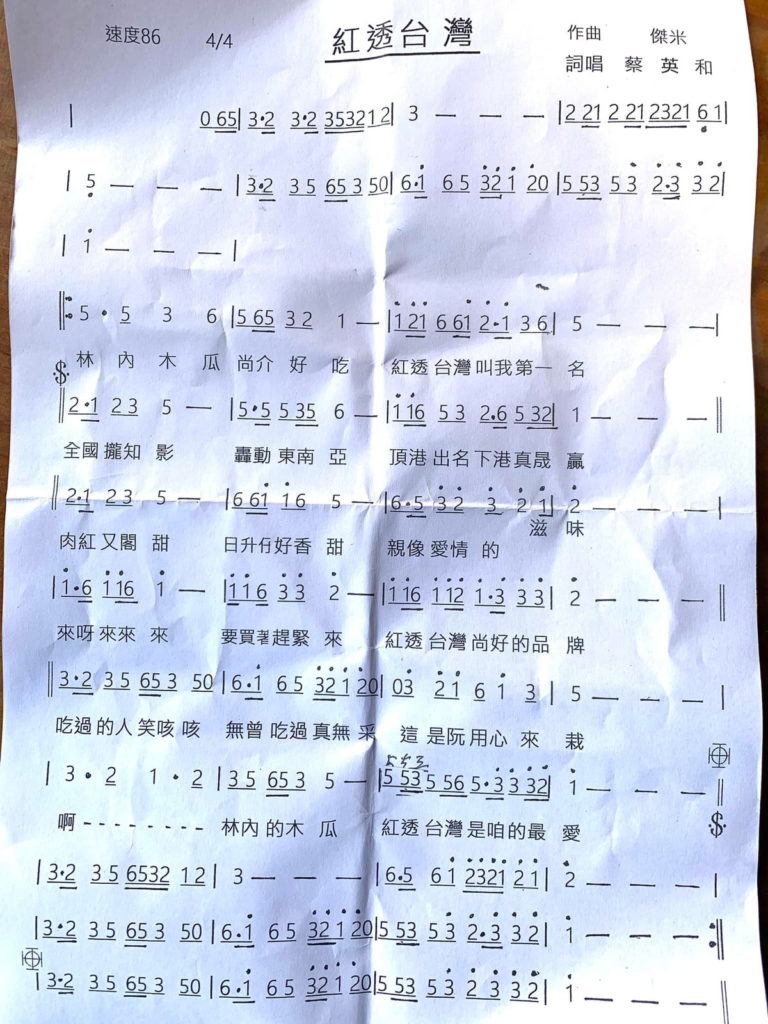 速度86 4/4 紅透台灣 作曲 傑米
詞唱 蔡英和
| 0 65| 3·2 3·2 353212| 3 — — — |2 21 2 21 2321 61|
| 5 — — — |3·2 35 653 50|6·1 65 321 20|5 53 53 2·3 32|
| 1 — — — |
‖: 5 · 5 3 6 |5 65 32 1 —|1 21 6 61 2·1 36| 5 — — —|
林內木瓜 尚介好吃 紅透台灣叫我第一名
‖2·1 23 5 — |5·5 535 6 —|116 53 2·6 532|1 — — ‖
全國攏知影 轟動東南亞 頂港出名下港真晟贏
‖2·1 23 5 — |6 61 16 5 —|6·5 32 3 2 1|2 — — —|
滋味
肉紅又閣甜 日升仔好香甜 親像愛情的
|1·6 116 1 — |116 33 2 —|116 112 1·3 33|2 — — — ‖
來呀來來來 要買著趕緊來 紅透台灣尚好的品牌
‖3·2 35 653 50|6·1 65 321 20|03 21 61 3|5 — — —|
吃過的人笑咳咳 無曾吃過真無采 這是阮用心來栽
553
| 3 · 2 1 · 2 |35 653 5 —|5 53 5 56 5·3 332|1 — — — ‖
啊-------- 林內的木瓜 紅透台灣是咱的最愛
|3·2 35 6532 12| 3 — — — |6·5 61 2321 21|2 — — — |
|3·2 35 653 50|6·1 65 321 20|5 53 53 2·3 32|1 — — — :‖
|3·2 35 653 50|6·1 65 321 20|5 53 53 2 3 32|1 — — — ‖